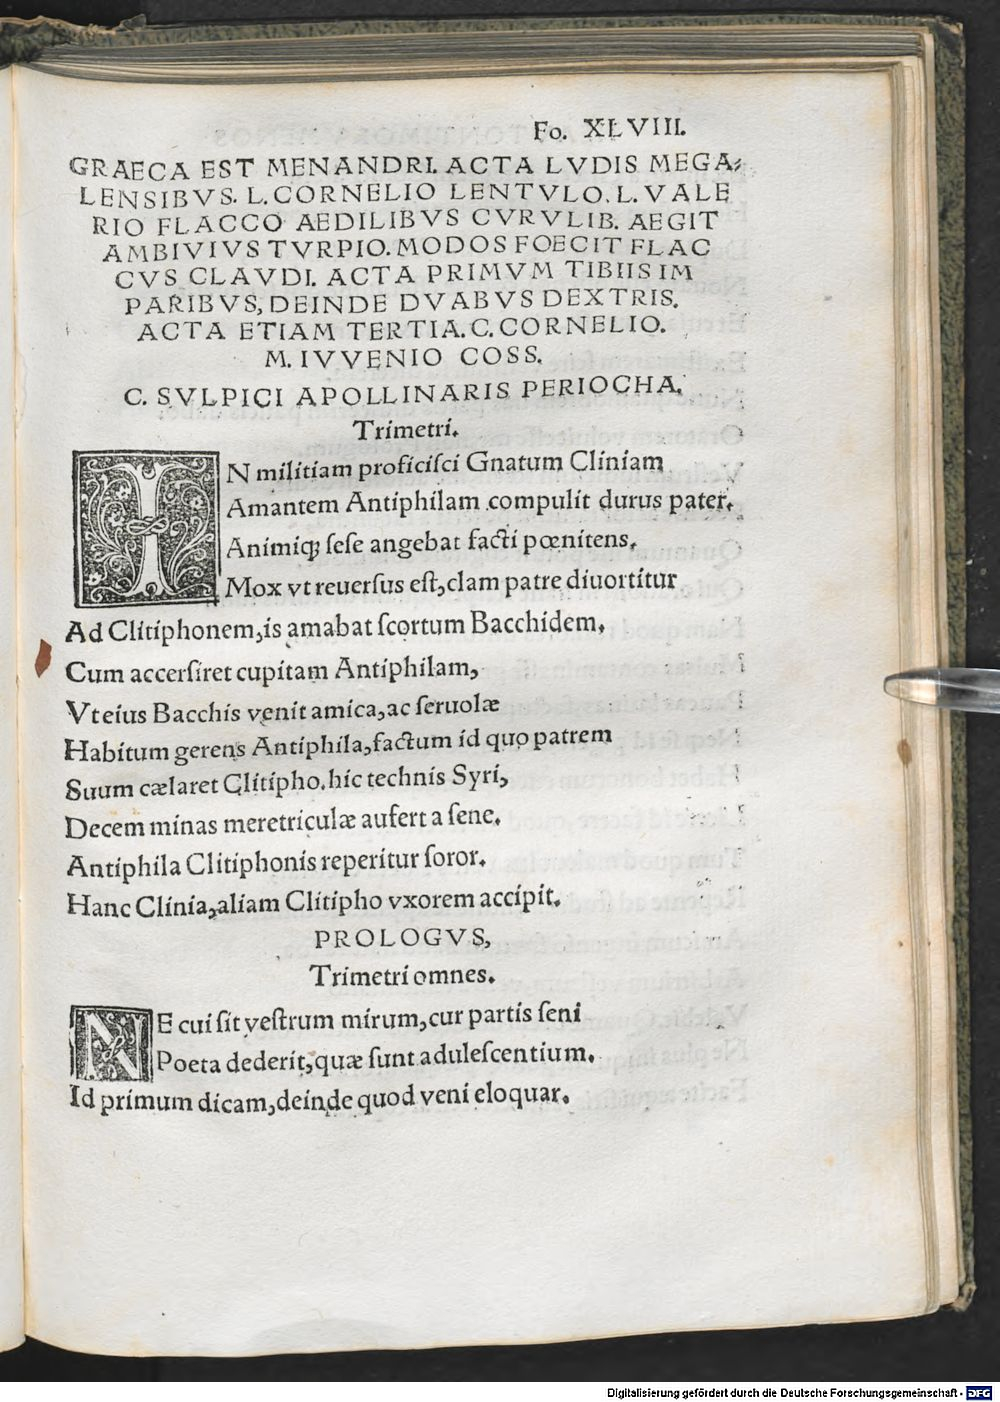 Fo. XLVIII.
GRAECA EST MENANDRI. ACTA LVDIS MEGA⸗
LENSIBVS. L. CORNELIO LENTVLO. L. VALE
RIO FLACCO AEDILIBVS CVRVLIB. AEGIT
AMBIVIVS TVRPIO. MODOS FOECIT FLAC
CVS CLAVDI. ACTA PRIMVM TIBIIS IM
PARIBVS, DEINDE DVABVS DEXTRIS.
ACTA ETIAM TERTIA. C. CORNELIO.
M. IVVENIO COSS.
C. SVLPICI APOLLINARIS PERIOCHA.
Trimetri.
IN militiam proficiſci Gnatum Cliniam
Amantem Antiphilam compulit durus pater.
Animiqꝫ ſeſe angebat facti pœnitens.
Mox vt reuerſus eſt, clam patre diuortitur
Ad Clitiphonem, is amabat ſcortum Bacchidem.
Cum accerſiret cupitam Antiphilam,
Vt eius Bacchis venit amica, ac ſeruolæ
Habitum gerens Antiphila, factum id quo patrem
Suum cælaret Clitipho. hic technis Syri,
Decem minas meretriculæ aufert a ſene.
Antiphila Clitiphonis reperitur ſoror.
Hanc Clinia, aliam Clitipho vxorem accipit.
PROLOGVS,
Trimetri omnes.
NE cui ſit veſtrum mirum, cur partis ſeni
Poeta dederit, quæ ſunt aduleſcentium.
Id primum dicam, deinde quod veni eloquar.
Digitalisierung gefördert durch die Deutsche Forschungsgemeinschaft - DFG